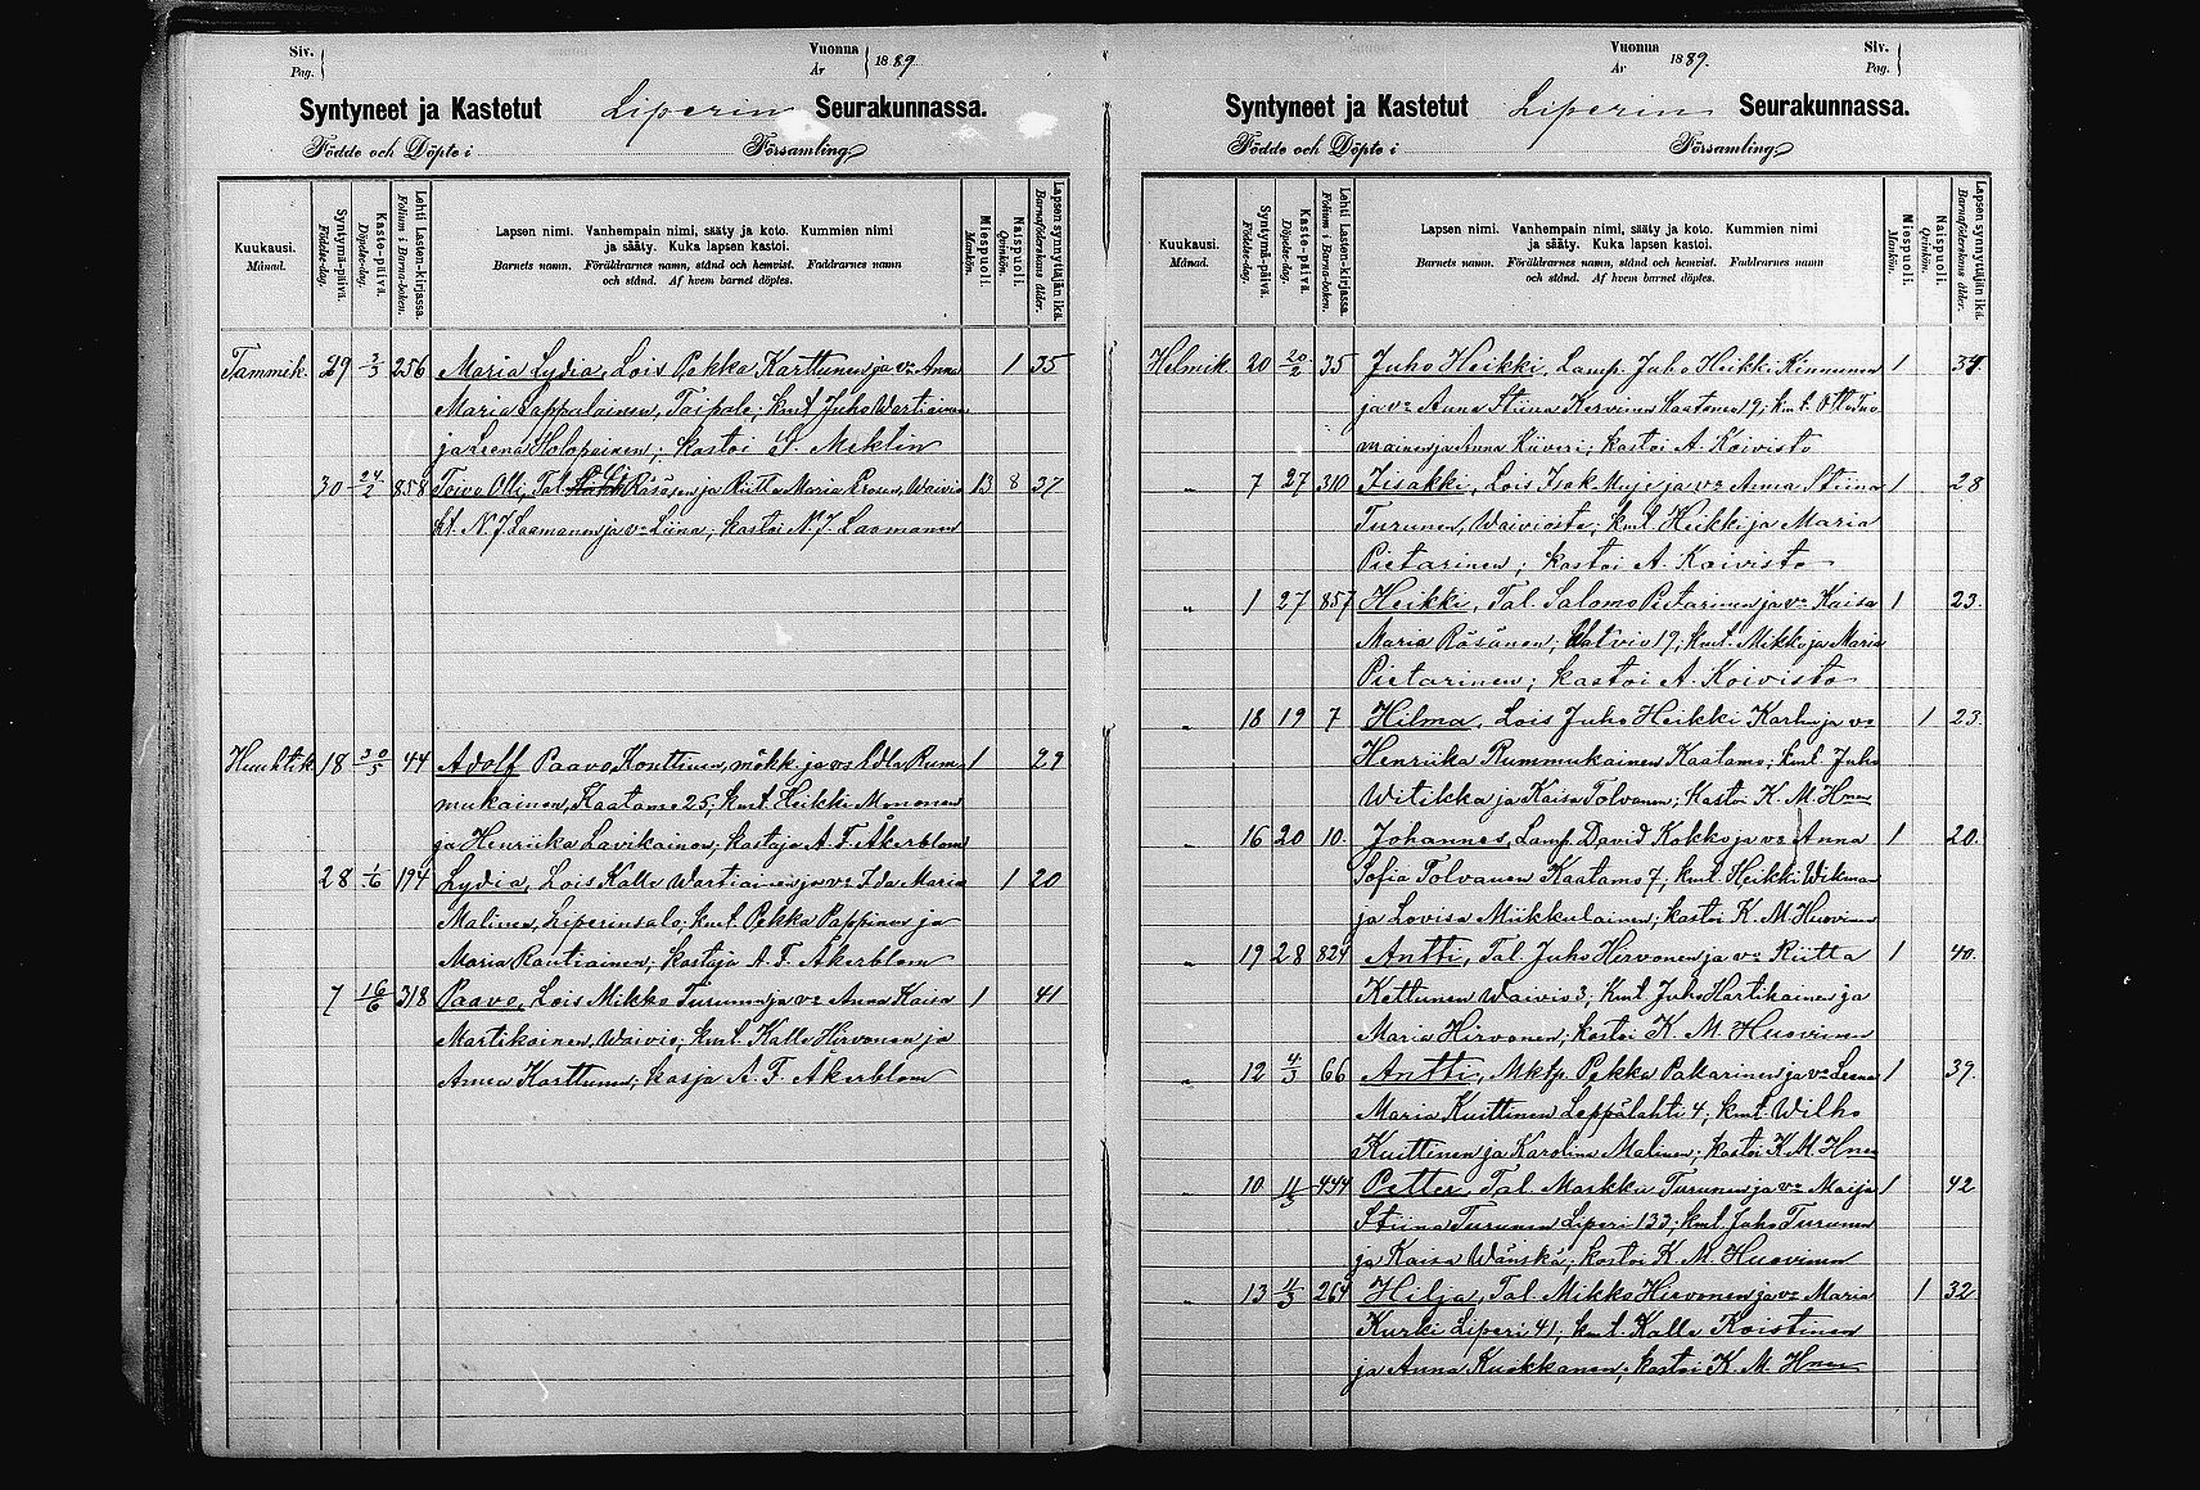 Siv.
Pag.
Vuonna
År
1889
Syntyneet ja Kastetut Liperin Seurakunnassa.
Födde och Döpte i Församling
Kuukausi.
Månad.
Syntymä-päivä.
Födelse-dag.
Kaste-päivä.
Döpelse-dag.
Lehti Lasten-kirjassa.
Folium i Barna-boken.
Lapsen nimi. Vanhempain nimi, sääty ja koto. Kummien nimi
ja sääty. Kuka lapsen kastoi.
Barnets namn. Föräldrarnes namn, stånd och hemvist. Faddrarnes namn
och stånd. Af hvem barnet döptes.
Miespuoli.
Mankön.
Naispuoli.
Qvinkön.
Lapsen synnyttäjän ikä.
Barnaföderskans ålder.
Tammik. 29 3/3 256 Maria Lydia, Lois Pekka Karttunen ja vo Anna 1 35
Maria Pappalainen, Taipale; kmt Juho Wartiainen
ja Leena Holopainen; kastoi S. Meklin
30 24/2 858 Toivo Olli, Tal. Olli Räsänen ja Riitta Maria Eronen, Waivio 13 8 37
kt. N. J. Laamanen ja vo Liina; kastoi N. J. Laamanen
Huuhtik. 18 30/5 44 Adolf Paavo Konttinen, mökk. ja vo Edla Rum- 1 29
mukainen, Kaatamo 25; kmt. Heikki Mononen
ja Henriika Lavikainen; kastaja A. F. Åkerblom
28 1/6 194 Lydia, Lois Kalle Wartiainen ja vo Ida Maria 1 20
Malinen, Liperinsalo; kmt. Pekka Pappinen ja
Maria Rautiainen; kastaja A. F. Åkerblom
7 16/6 318 Paavo, Lois Mikko Turunen ja vo Anna Kaisa 1 41
Martikainen, Waivio; kmt. Kalle Hirvonen ja
Anna Karttunen; kasja A. F. Åkerblom
Vuonna
År
1889.
Siv.
Pag.
Syntyneet ja Kastetut Liperin Seurakunnassa.
Födde och Döpte i Församling
Kuukausi.
Månad.
Syntymä-päivä.
Födelse-dag.
Kaste-päivä.
Döpelse-dag.
Lehti Lasten-kirjassa.
Folium i Barna-boken.
Lapsen nimi. Vanhempain nimi, sääty ja koto. Kummien nimi
ja sääty. Kuka lapsen kastoi.
Barnets namn. Föräldrarnes namn, stånd och hemvist. Faddrarnes namn
och stånd. Af hvem barnet döptes.
Miespuoli.
Mankön.
Naispuoli.
Qvinkön.
Lapsen synnyttäjän ikä.
Barnaföderskans ålder.
Helmik 20 20/2 35 Juho Heikki, Lamp. Juho Heikki Kinnunen 1
ja vo Anna Stiina Kervinen Kaatamo 19; kmt. Otto Tuo
mainen ja Anna Kiiveri; kastoi A. Koivisto
" 7 27 310 Iisakki, Lois Isak Muje ja vo Anna Stiina 1 28
Turunen, Waivioita; kmt. Heikki ja Maria
Pietarinen; kastoi A. Koivisto
" 1 27 857 Heikki, Tal. Salomo Pietarinen ja vo Kaisa 1 23.
Maria Räsänen; Waivio 19; kmt. Mikko ja Maria
Pietarinen; kastoi A. Koivisto
" 18 19 7 Hilma, Lois Juho Heikki Karhu ja vo 1 23.
Henriika Rummukainen Kaatamo; kmt. Juho
Witikka ja Kaisa Tolvanen; kastoi K. M. Hnen
" 16 20 10. Johannes, Lamp. David Kokko ja vo Anna 1 20.
Sofia Tolvanen Kaatamo 7; kmt. Heikki Wikman
ja Lovisa Miikkulainen; kastoi K. M. Huovinen
" 19 28 824 Antti, Tal. Juho Hirvonen ja vo Riitta 1 40.
Kettunen Waivio 3; kmt Juho Hartikainen ja
Maria Hirvonen; kastoi K. M. Huovinen
" 12 4/3 66 Antti, Mktp. Pekka Pakarinen ja vo Leena 1 39.
Maria Kuittinen Leppälahti 4; kmt. Wilho
Kuittinen ja Karolina Malinen; kastoi K. M. Hnen
" 10 11/3 444 Petter, Tal. Markku Turunen ja vo Maija 1 42
Stiina Turunen Liperi 133; kmt. Juho Turunen
ja Kaisa Wänskä; kastoi K. M. Huovinen
" 13 11/3 264 Hilja, Tal. Mikko Hirvonen ja vo Maria 1 32
Kurki Liperi 41; kmt. Kalle Koistinen
ja Anna Kuokkanen; kastoi K. M. Hnen